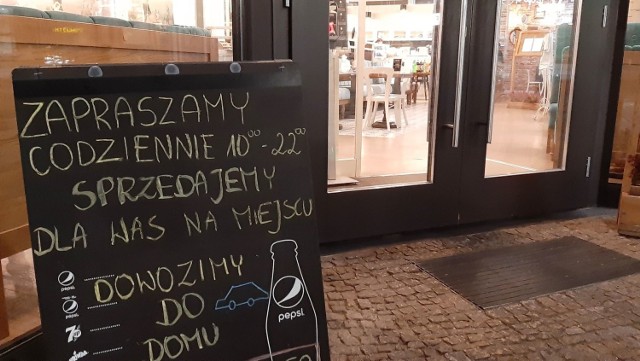 ZAPRASZAMY
CODZIENNIE 10⁰⁰-22⁰⁰
SPRZEDAJEMY
DLA WAS NA MIEJSCU
DOWOZIMY
DO
DOMU
pepsi
7UP